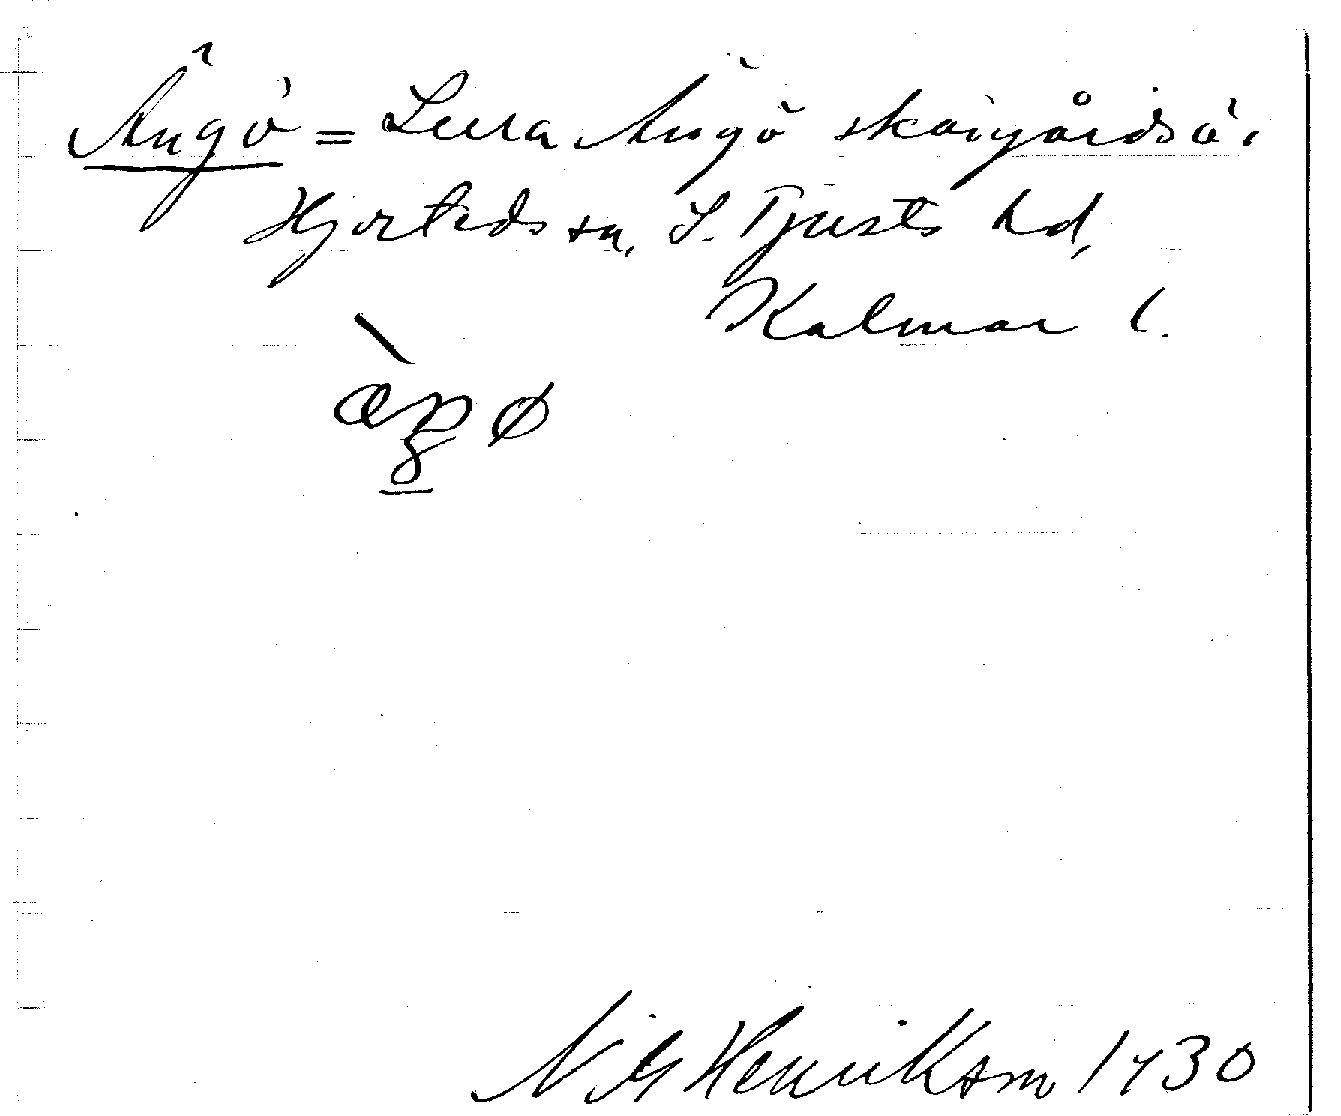 Ängö = Lilla Ängö skärgårdsö.
Hjorteds sn, S. Tjusts hd,
Kalmar l.
N M Henrikson 1930